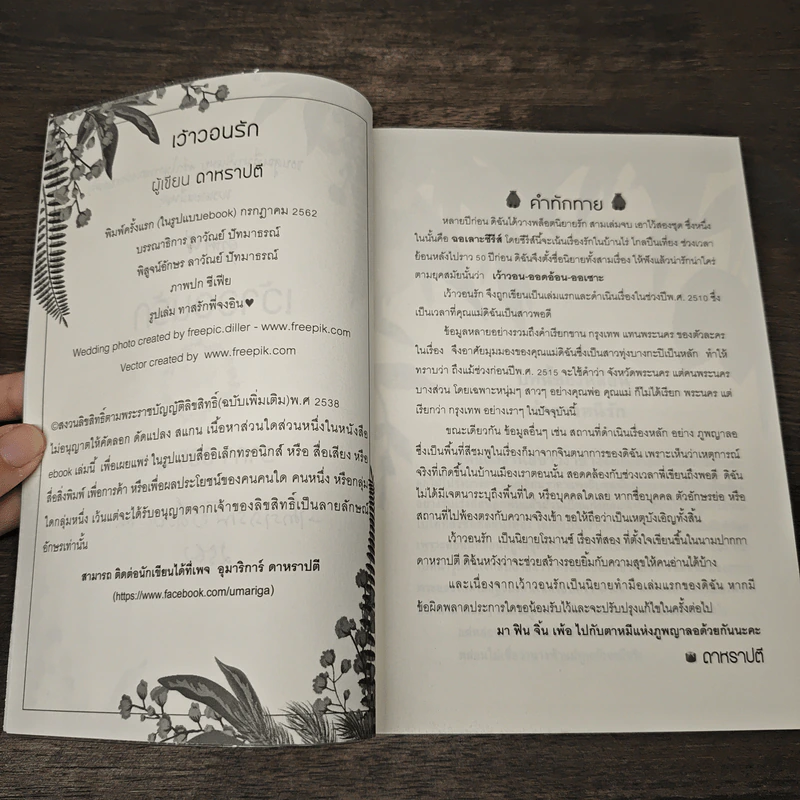 เว้าวอนรัก
ผู้เขียน ดาหราปตี
พิมพ์ครั้งแรก (ในรูปแบบebook) กรกฎาคม 2562
บรรณาธิการ ลาวัณย์ ปัทมาธรณ์
พิสูจน์อักษร ลาวัณย์ ปัทมาธรณ์
ภาพปก ซีเฟีย
รูปเล่ม ทาสรักพี่จงอิน♥
Wedding photo created by freepic.diller - www.freepik.com
Vector created by www.freepik.com
©สงวนลิขสิทธิ์ตามพระราชบัญญัติลิขสิทธิ์(ฉบับเพิ่มเติม)พ.ศ 2538
ไม่อนุญาตให้คัดลอก ดัดแปลง สแกน เนื้อหาส่วนใดส่วนหนึ่งในหนังสือ
ebook เล่มนี้ เพื่อเผยแพร่ ในรูปแบบสื่ออิเล็กทรอนิกส์ หรือ สื่อเสียง หรือ
สื่อสิ่งพิมพ์ เพื่อการค้า หรือเพื่อผลประโยชน์ของคนคนใด คนหนึ่ง หรือกลุ่ม
ใดกลุ่มหนึ่ง เว้นแต่จะได้รับอนุญาตจากเจ้าของลิขสิทธิ์เป็นลายลักษณ์
อักษรเท่านั้น
สามารถ ติดต่อนักเขียนได้ที่เพจ อุมาริการ์ ดาหราปตี
(https://www.facebook.com/umariga)
คำทักทาย
หลายปีก่อน ดิฉันได้วางพล็อตนิยายรัก สามเล่มจบ เอาไว้สองชุด ซึ่งหนึ่ง
ในนั้นคือ ฉอเลาะซีรีส์ โดยซีรีส์นี้จะเน้นเรื่องรักในบ้านไร่ ไกลปืนเที่ยง ช่วงเวลา
ย้อนหลังไปราว 50 ปีก่อน ดิฉันจึงตั้งชื่อนิยายทั้งสามเรื่อง ให้ฟังแล้วน่ารักน่าใคร่
ตามยุคสมัยนั้นว่า เว้าวอน-ออดอ้อน-ออเซาะ
เว้าวอนรัก จึงถูกเขียนเป็นเล่มแรกและดำเนินเรื่องในช่วงปีพ.ศ. 2510 ซึ่ง
เป็นเวลาที่คุณแม่ดิฉันเป็นสาวพอดี
ข้อมูลหลายอย่างรวมถึงคำเรียกขาน กรุงเทพ แทนพระนคร ของตัวละคร
ในเรื่อง จึงอาศัยมุมมองของคุณแม่ดิฉันซึ่งเป็นสาวทุ่งบางกะปิเป็นหลัก ทำให้
ทราบว่า ถึงแม้ช่วงก่อนปีพ.ศ. 2515 จะใช้คำว่า จังหวัดพระนคร แต่คนพระนคร
บางส่วน โดยเฉพาะหนุ่มๆ สาวๆ อย่างคุณพ่อ คุณแม่ ก็ไม่ได้เรียก พระนคร แต่
เรียกว่า กรุงเทพ อย่างเราๆ ในปัจจุบันนี้
ขณะเดียวกัน ข้อมูลอื่นๆ เช่น สถานที่ดำเนินเรื่องหลัก อย่าง ภูพญาลอ
ซึ่งเป็นพื้นที่สีชมพูในเรื่องก็มาจากจินตนาการของดิฉัน เพราะเห็นว่าเหตุการณ์
จริงที่เกิดขึ้นในบ้านเมืองเราตอนนั้น สอดคล้องกับช่วงเวลาที่เขียนถึงพอดี ดิฉัน
ไม่ได้มีเจตนาระบุถึงพื้นที่ใด หรือบุคคลใดเลย หากชื่อบุคคล ตัวอักษรย่อ หรือ
สถานที่ไปพ้องตรงกับความจริงเข้า ขอให้ถือว่าเป็นเหตุบังเอิญทั้งสิ้น
เว้าวอนรัก เป็นนิยายโรมานซ์ เรื่องที่สอง ที่ตั้งใจเขียนขึ้นในนามปากกา
ดาหราปตี ดิฉันหวังว่าจะช่วยสร้างรอยยิ้มกับความสุขให้คนอ่านได้บ้าง
และเนื่องจากเว้าวอนรักเป็นนิยายทำมือเล่มแรกของดิฉัน หากมี
ข้อผิดพลาดประการใดขอน้อมรับไว้และจะปรับปรุงแก้ไขในครั้งต่อไป
มา ฟิน จิ้น เพ้อ ไปกับตาหมีแห่งภูพญาลอด้วยกันนะคะ
ดาหราปตี